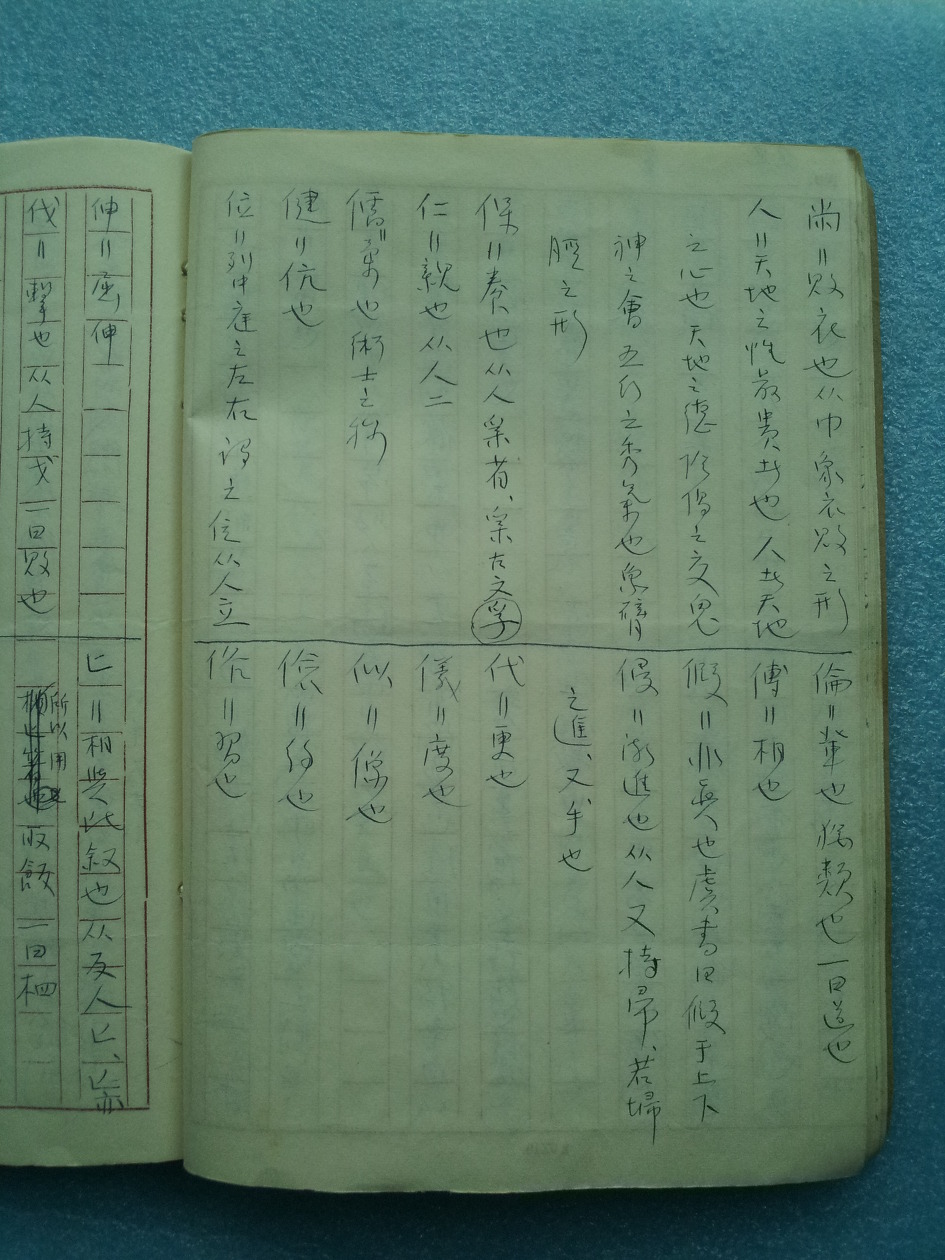 㡀=敗衣也从巾象衣敗之形
人=天地之性最貴此也人者天地
之心也天地之德陰陽之交鬼
神之會五行之秀氣也象臂
脛之形
保=養也从人采省、采古文孚
仁=親也从人二
儒=柔也術士之称
健=伉也
位=列中庭之左右謂之位从人立
倫=輩也 類也一曰道也
傅=相也
假=非真也虞書曰假于上下
侵=漸進也从人又持帚、若埽
之進、又手也
代=更也
儀=度也
似=像也
儉=約也
俗=習也
伸=屈伸
伐=擊也从人持戈一曰敗也
匕=相與比叙也从反人匕、匕亦
所以用 取飯一曰柶